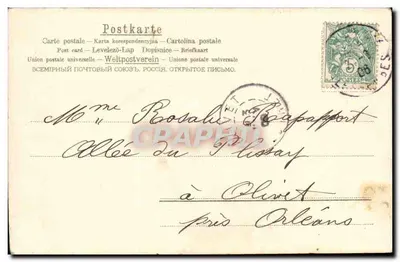 Postkarte
Carte postale — Karta korespondencyjna — Cartolina postale
Post card — Levelező-Lap — Dopisnice — Briefkaart
Union postale universelle — Weltpostverein — Unione postale universale
ВСЕМІРНЫЙ ПОЧТОВЫЙ СОЮЗЪ. РОССІЯ. ОТКРЫТОЕ ПИСЬМО.
Mme Rosalie Rapapport
Allée du Plissay
à Olivet
près Orléans